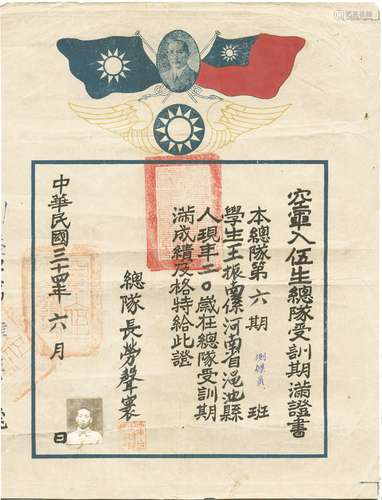 空軍入伍生總隊受訓期滿證書
本總隊第六期 測候員 班
學生王振南係河南省澠池縣
人現年二〇歲在總隊受訓期
滿成績及格特給此證
總隊長勞聲寰
中華民國三十四年六月 日